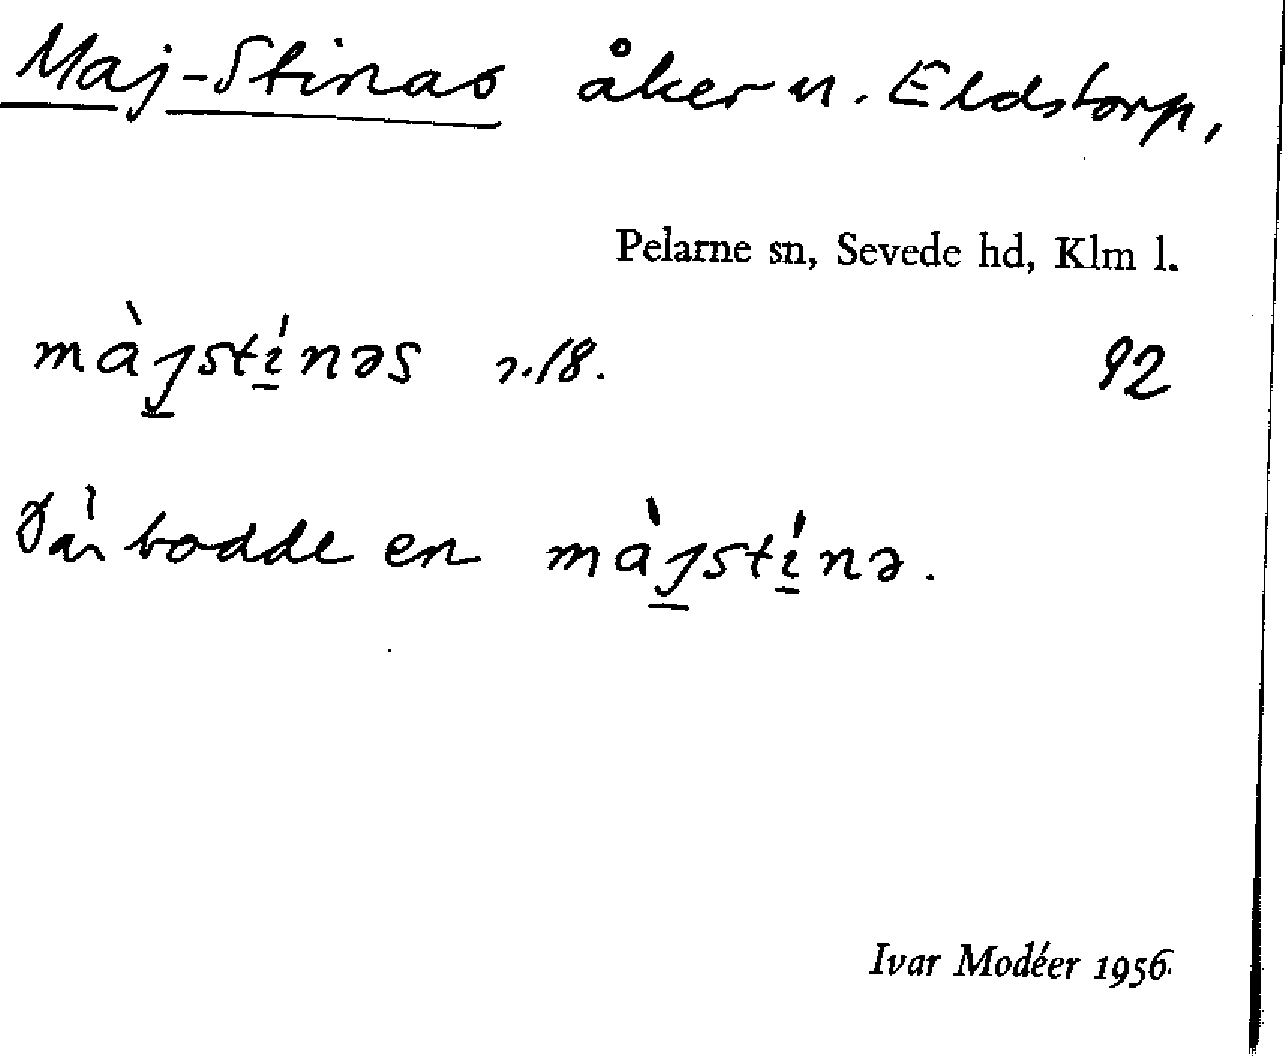 Maj-Stinas åker u. Eldstorp,
Pelarne sn, Sevede hd, Klm l.
màjstínəs r.18. 92
Där bodde en màjstínə.
Ivar Modéer 1956